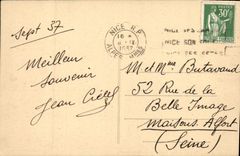 Sept 37
Meilleur
Souvenir
Jean
NICE R.P.
16
1937
ALPES MMES
NICE SON
30c
M et Mme Butavand
52 Rue de la
Belle Image
Maisons Alfort
(Seine)